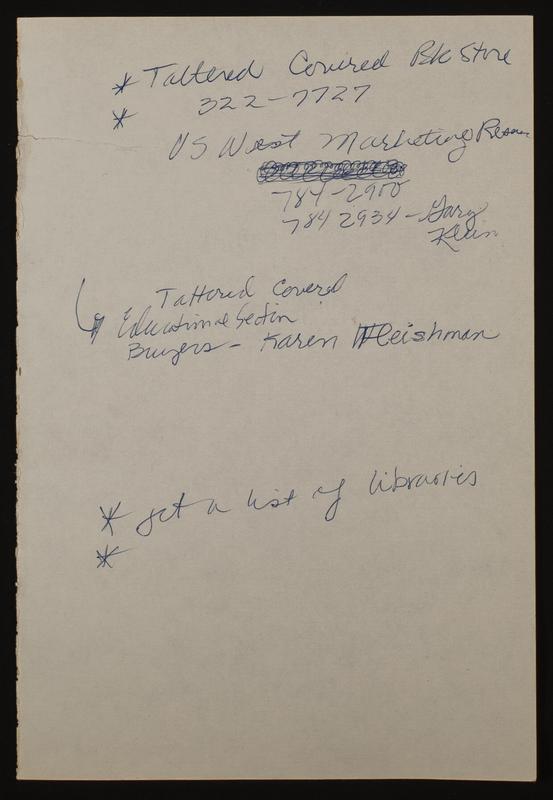 * Tattered Covered Bk Store
* 322-7727
US West Marketing Resou
784-2900
784 2934 - Gary
Klein
Tattored Covered
Educational Section
Buyers - Karen Fleishman
* get a list of libraries
*